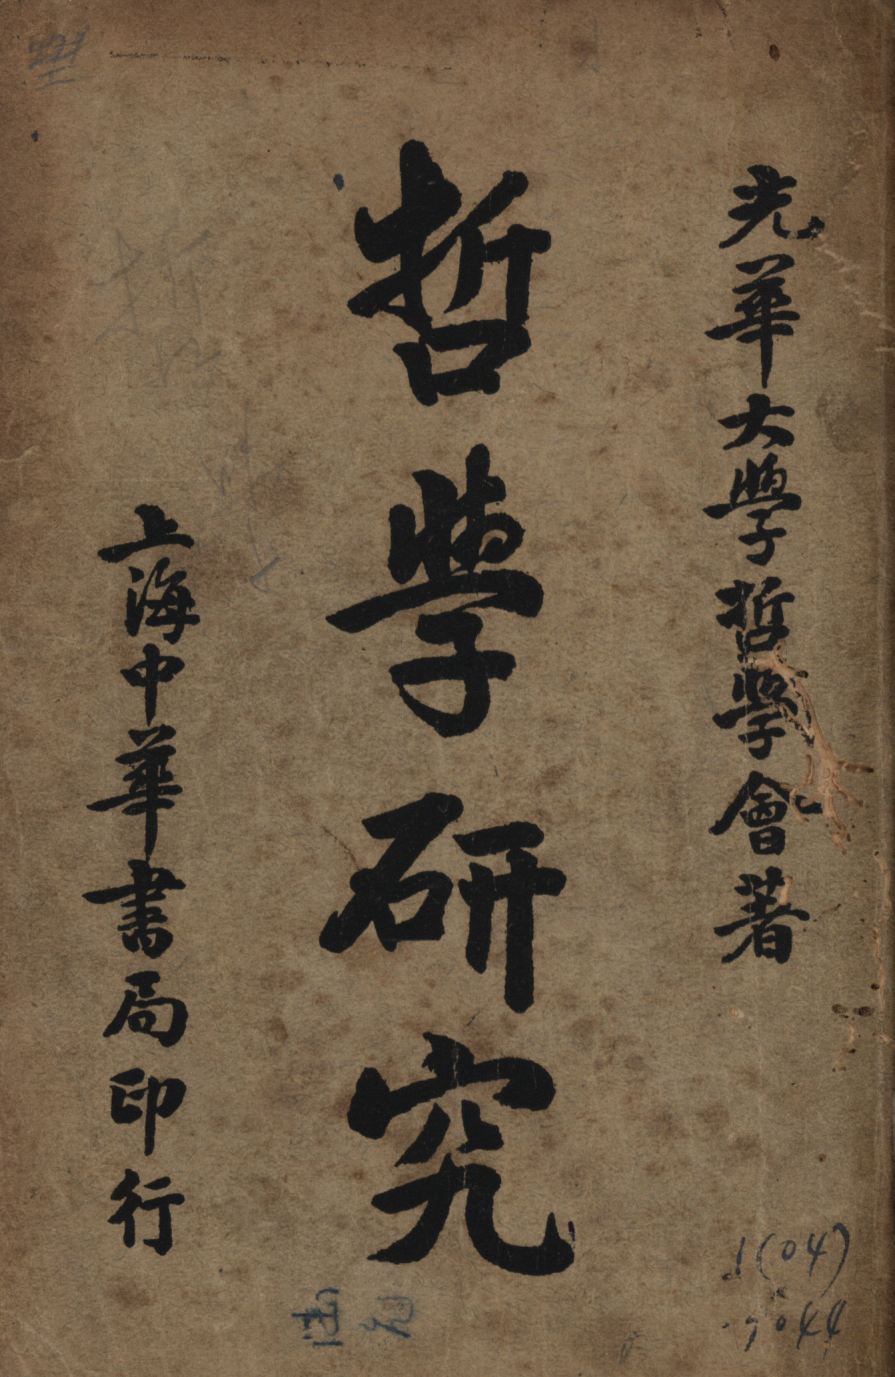 光華大學哲學會著
哲學研究
上海中華書局印行